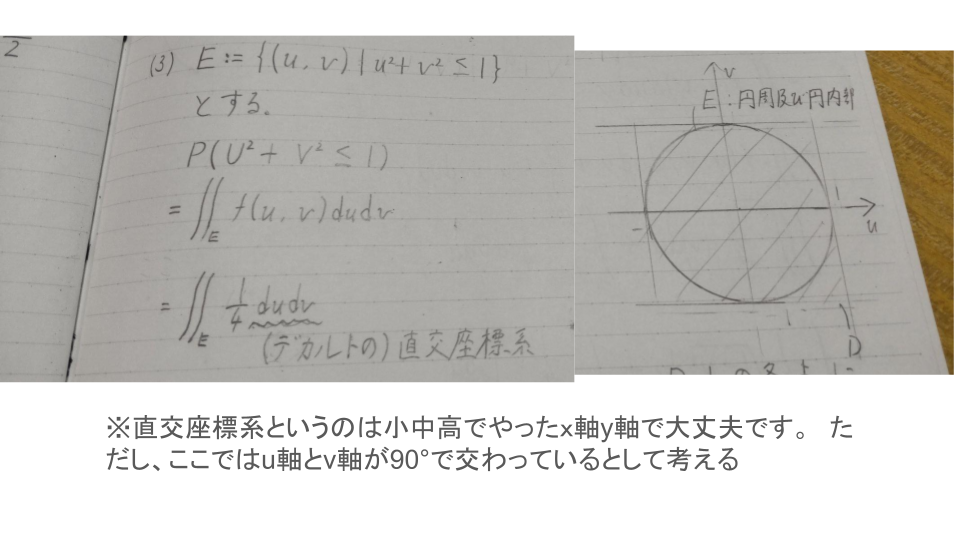 2
(3) E:={(u,v)|u²+v²≤1}
とする.
P(U²+V²≤1)
=∬_E f(u,v)dudv
=∬_E 1/4 dudv
(デカルトの)直交座標系
v
E:円周及び円内部
1
u
D
※直交座標系というのは小中高でやったx軸y軸で大丈夫です。 た
だし、ここではu軸とv軸が90°で交わっているとして考える